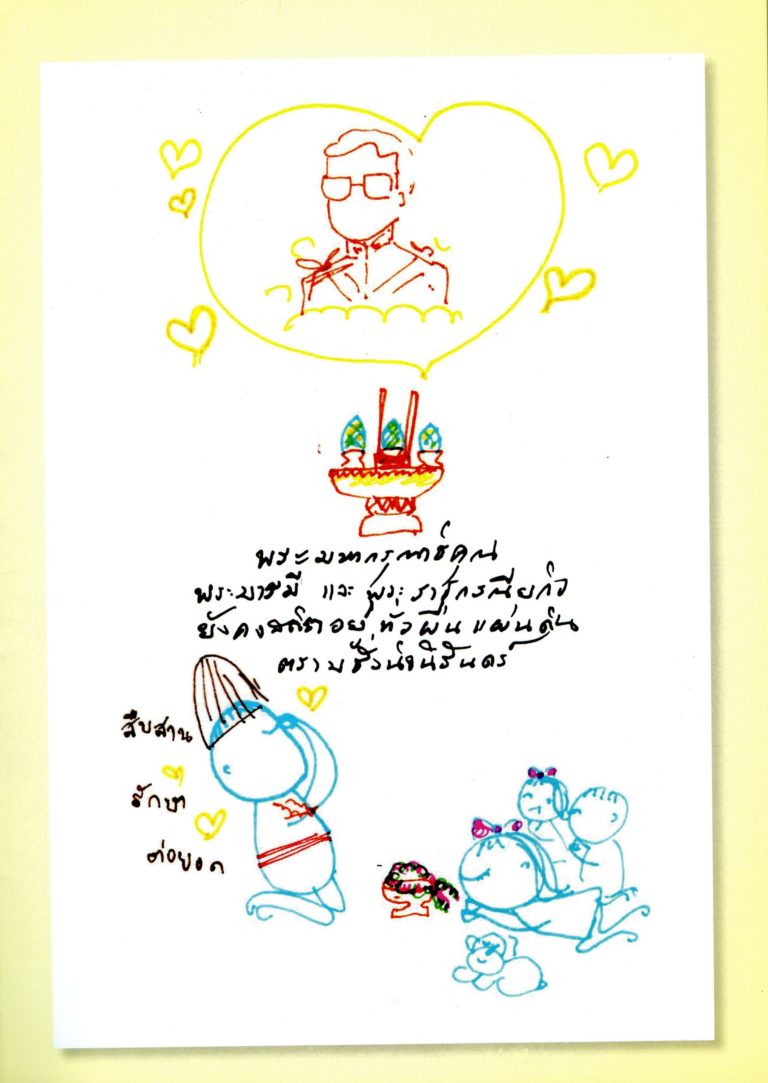 พระมหากรุณาธิคุณ
พระบารมี และ พระราชกรณียกิจ
ยังคงสถิตอยู่ทั่วผืนแผ่นดิน
ตราบชั่วนิจนิรันดร์
สืบสาน
รักษา
ต่อยอด